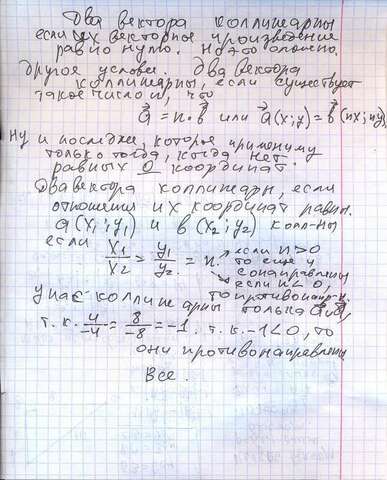 Два вектора коллинеарны
если их векторное произведение
равно нулю. Но это сложно.
Другое условие. Два вектора
коллинеарны, если существует
такое число n, что
a = n·b или a(x;y)=b(nx;ny)
ну и последнее, которое применимо
только тогда, когда нет
равных 0 координат.
Два вектора коллинеарн, если
отношения их координат равны.
a(x1;y1) и b(x2;y2) колл-ны
если x1/x2 = y1/y2 = n. если n>0
то еще и
сонаправлены
если n<0,
то противонапр-н.
у нас коллинеарны только
т.к. 4/-4 = 8/-8 = -1. т.к. -1<0, то
они противонаправлены
Все.